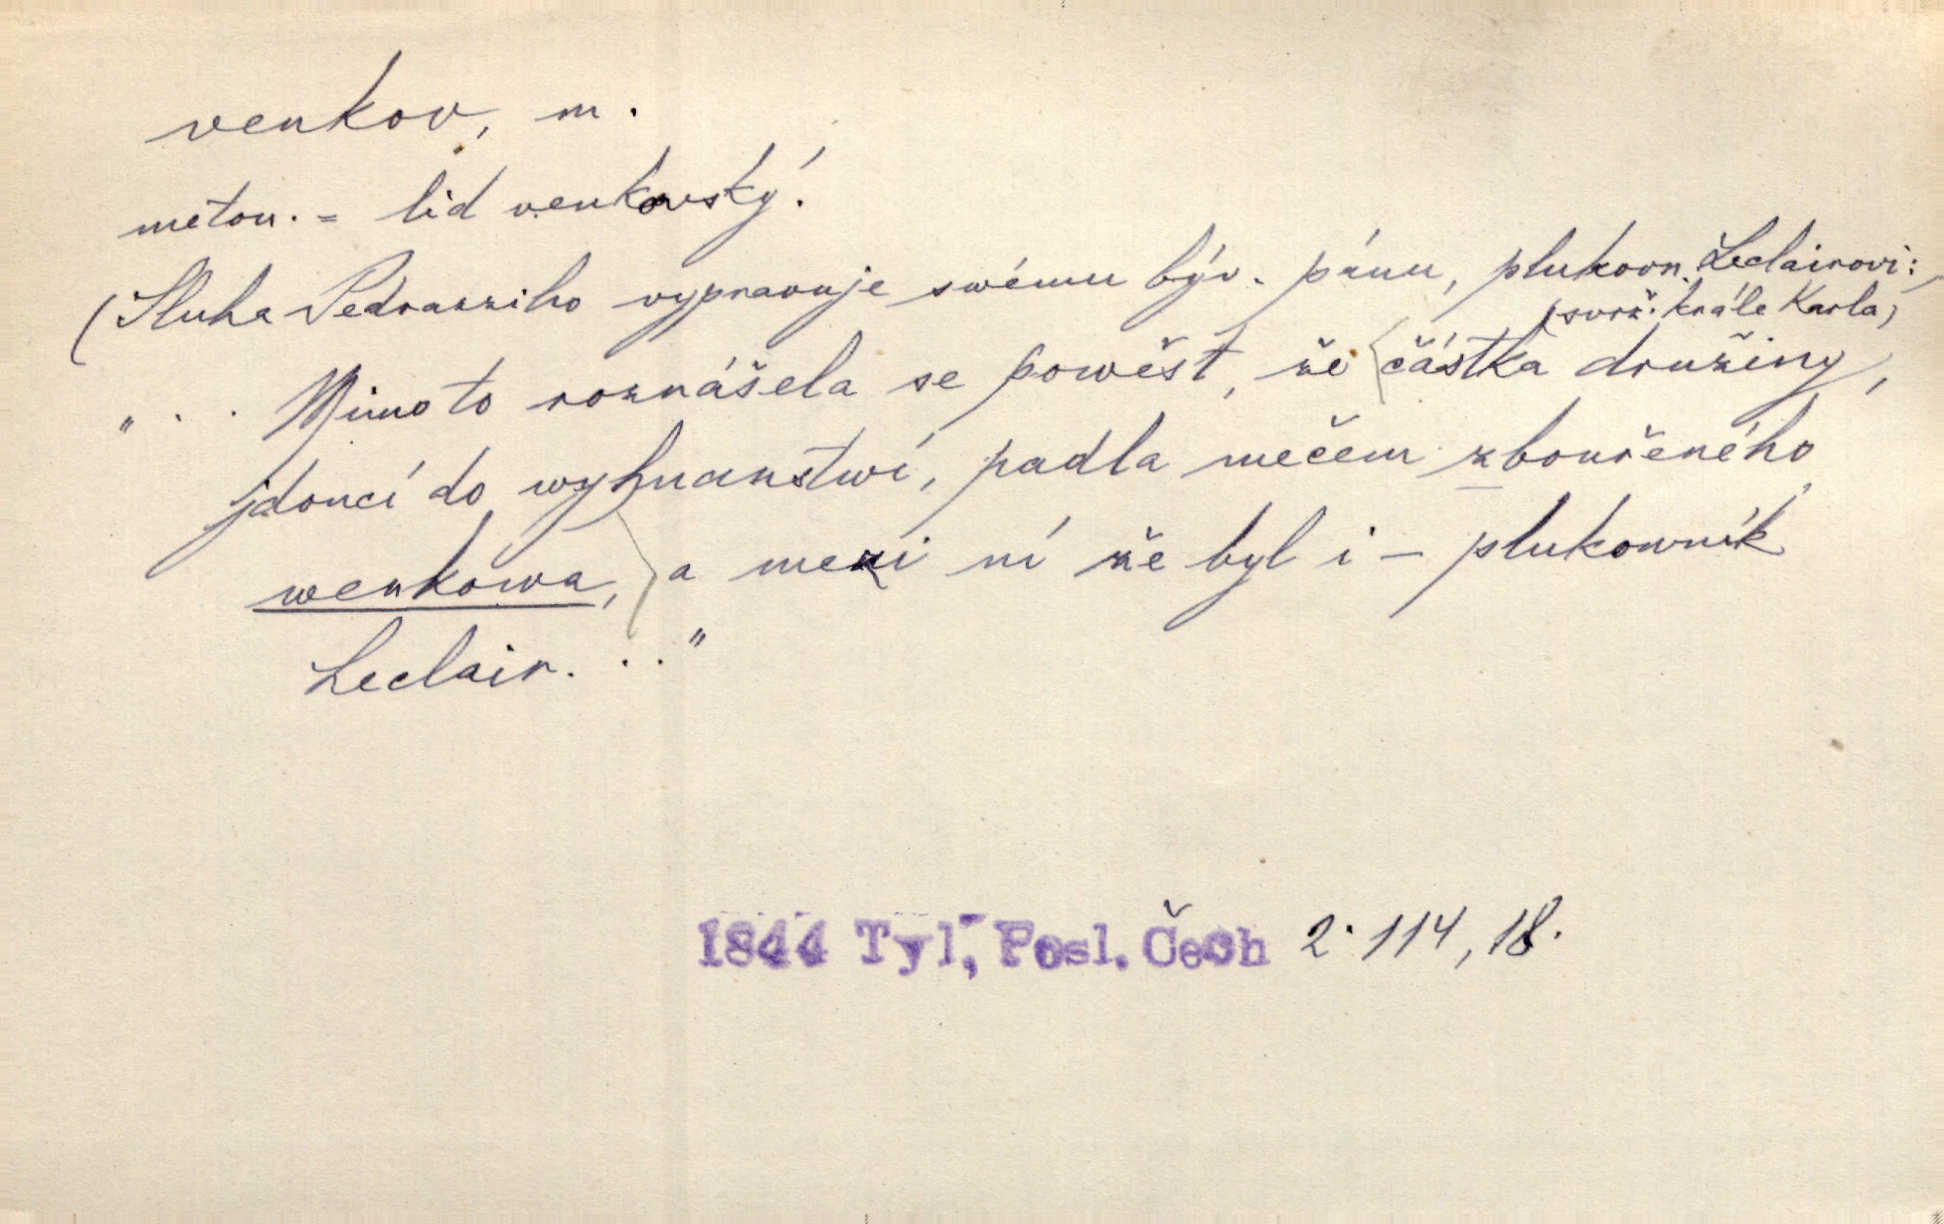 venkov, m.
meton. = lid venkovský.
(Sluha Pedrazziho vypravuje swému býv. pánu, plukovn. Leclairovi:
(svrž. krále Karla)
"... Mimo to roznášela se powěst, že částka družiny,
jdoucí do wyhnanstwí, padla mečem zbouřeného
wenkowa, a mezi ní že byl i – plukowník
Leclair..."
1844 Tyl, Posl. Čech 2. 114, 18.